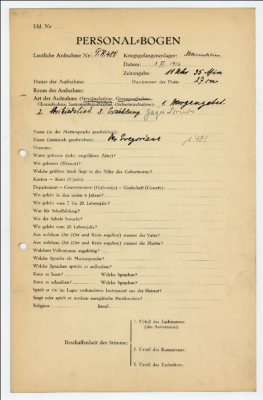 Lfd. Nr.
PERSONAL-BOGEN
Lautliche Aufnahme Nr.: P.K. 481 Kriegsgefangenenlager: Mannheim
Datum:
Zeitangabe: 11 Uhr 35 Min
Dauer der Aufnahme: Durchmesser der Platte: 27 cm
Raum der Aufnahme:
Art der Aufnahme
1. Morgengebet.
2. 3. Erzählung
Name (in der Muttersprache geschrieben):
Name (lateinisch geschrieben):
Vorname:
Wann geboren (oder ungefähres Alter)?
Wo geboren (Heimat)?
Welche größere Stadt liegt in der Nähe des Geburtsortes?
Kanton — Kreis (Ujezd):
Departement — Gouvernement (Gubernija) — Grafschaft (County):
Wo gelebt in den ersten 6 Jahren?
Wo gelebt vom 7. bis 20. Lebensjahr?
Was für Schulbildung?
Wo die Schule besucht?
Wo gelebt vom 20. Lebensjahr?
Aus welchem Ort (Ort und Kreis angeben) stammt der Vater?
Aus welchem Ort (Ort und Kreis angeben) stammt die Mutter?
Welchem Volksstamm angehörig?
Welche Sprache als Muttersprache?
Welche Sprachen spricht er außerdem?
Kann er lesen? Welche Sprachen?
Kann er schreiben? Welche Sprachen?
Spielt er ein im Lager vorhandenes Instrument aus der Heimat?
Singt oder spielt er modern europäische Musikweisen?
Religion: Beruf:
Beschaffenheit der Stimme:
1. Urteil des Fachmannes
(des Assistenten):
2. Urteil des Kommissars:
3. Urteil des Technikers: